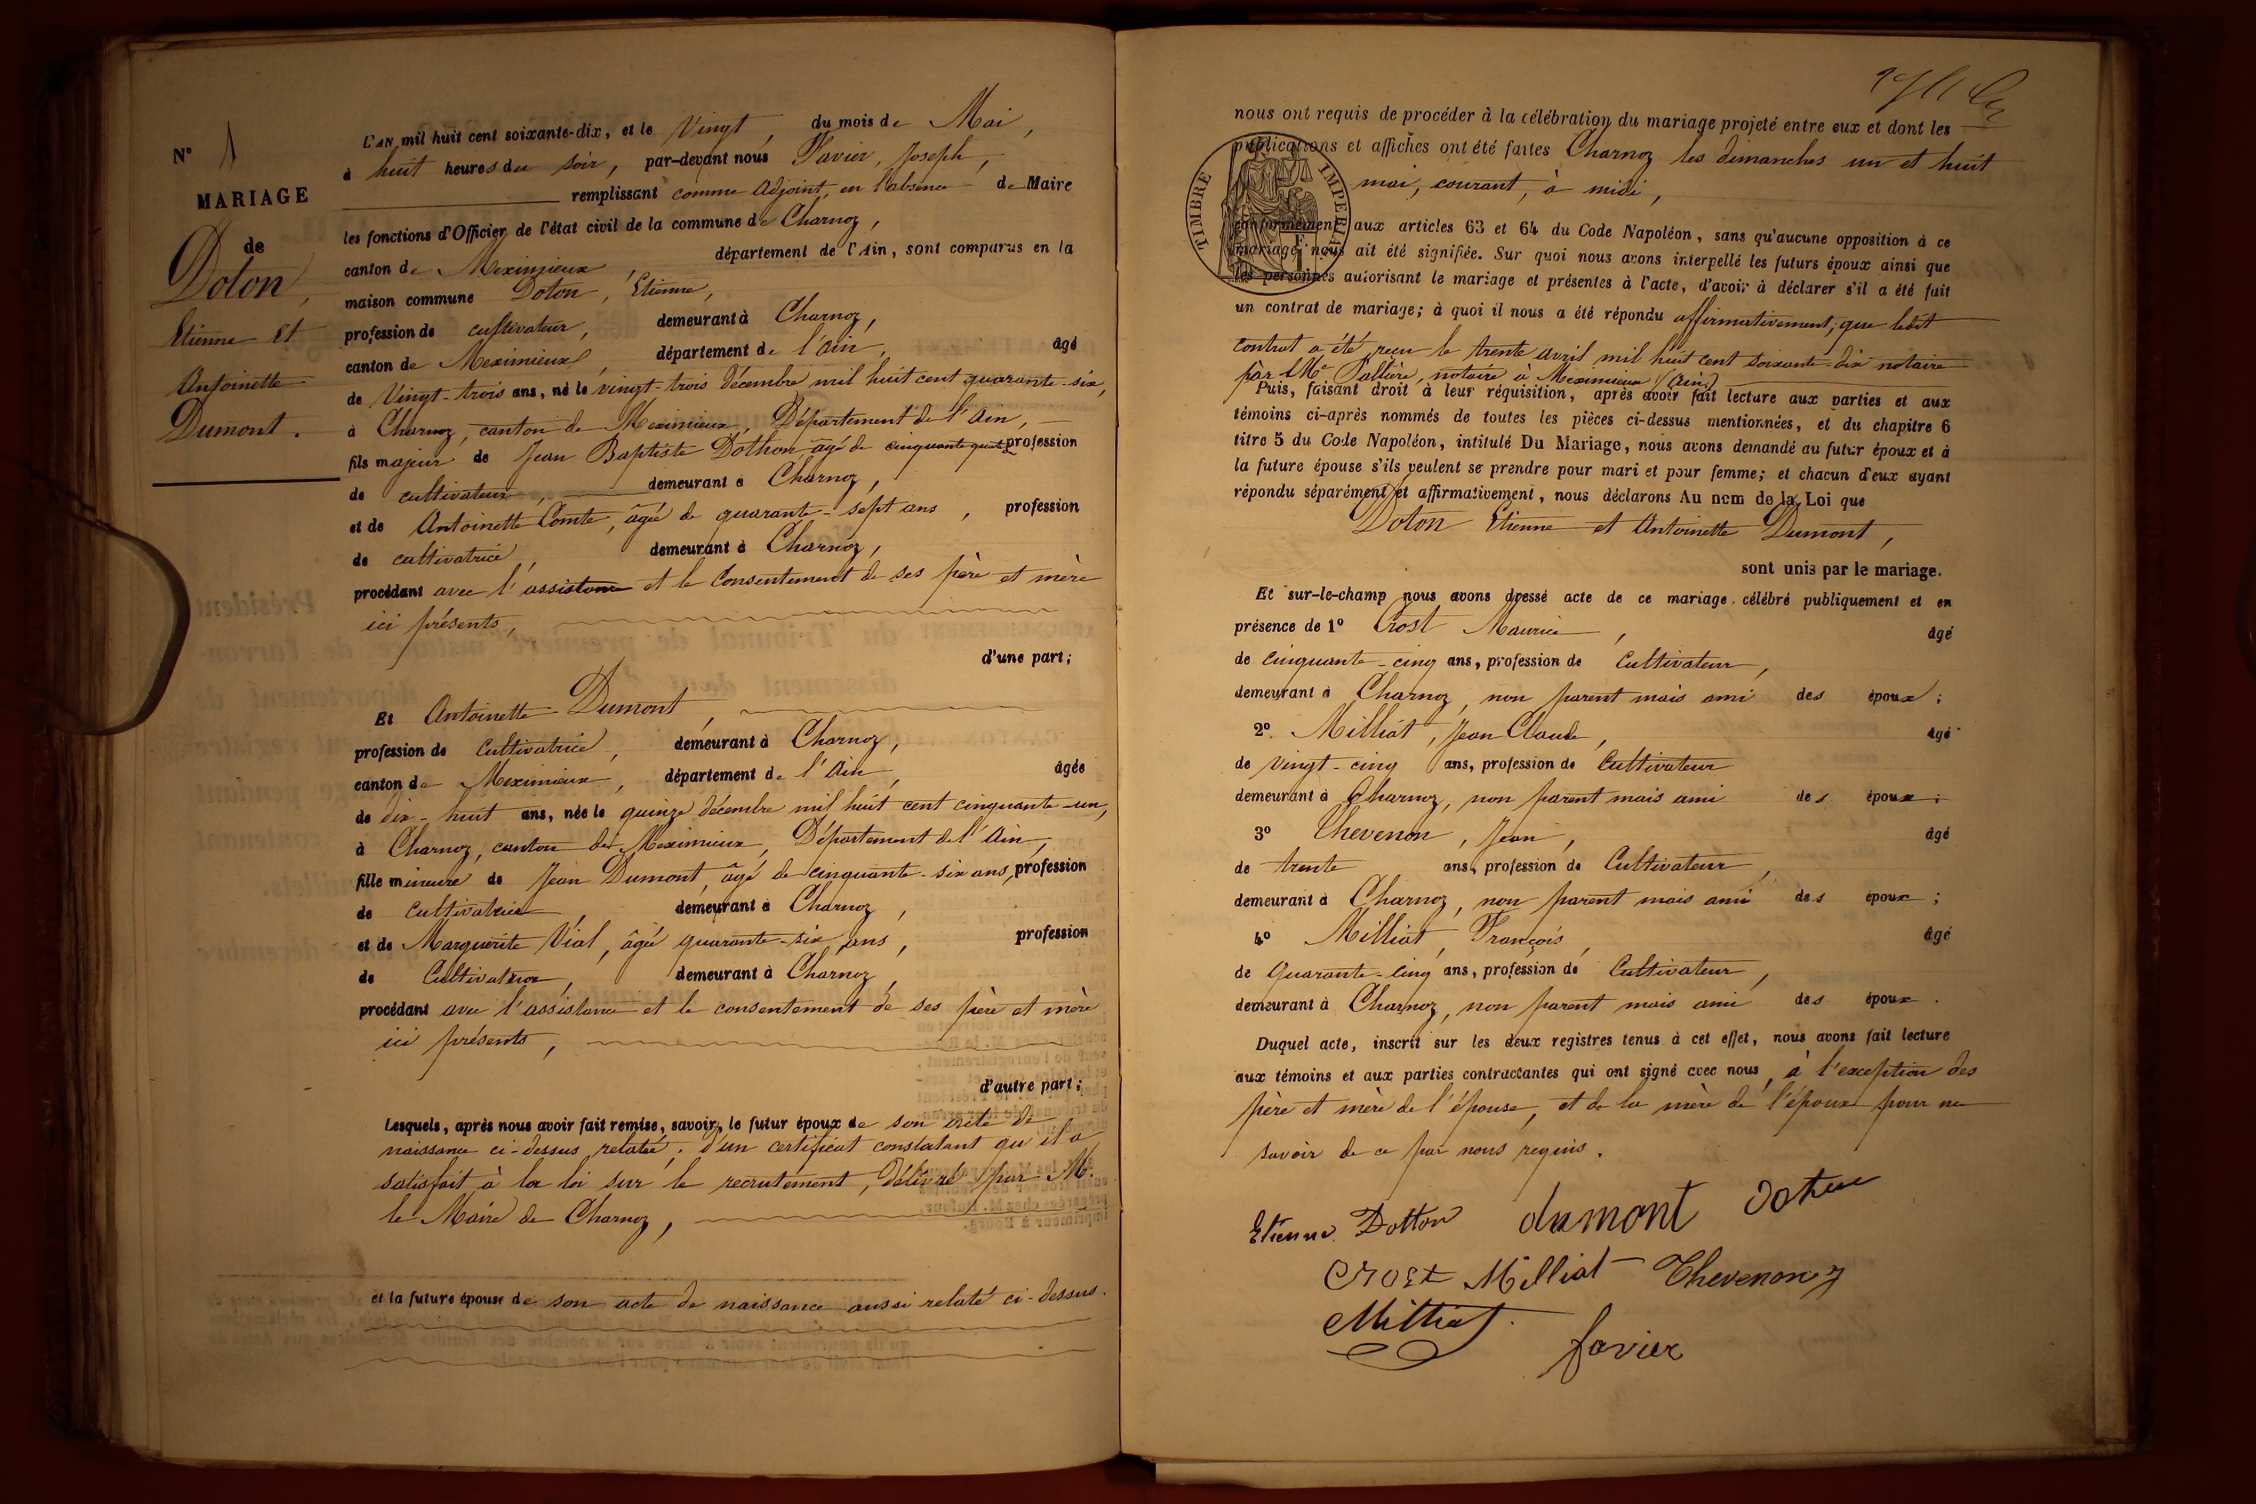 N° 1
MARIAGE
de
Doton,
Etienne et
Antoinette
Dumont.
L'AN mil huit cent soixante-dix, et le Vingt, du mois de Mai,
à huit heures du soir, par-devant nous Favier, Joseph,
remplissant comme adjoint, en l'absence de Maire
les fonctions d'Officier de l'état civil de la commune de Charnoz,
canton de Meximieux, département de l'Ain, sont comparus en la
maison commune Doton, Etienne,
profession de cultivateur, demeurant à Charnoz,
canton de Meximieux, département de l'ain, âgé
de Vingt-trois ans, né le vingt-trois décembre mil huit cent quarante-six,
à Charnoz, canton de Meximieux, Département de l'ain,
fils majeur de Jean Baptiste Dothon âgé de cinquante quatre profession
de cultivateur, demeurant à Charnoz,
et de Antoinette Comte, âgée de quarante-sept ans, profession
de cultivatrice, demeurant à Charnoz,
procédant avec l'assistance et le Consentement de ses père et mère
ici présents,
d'une part;
Et Antoinette Dumont,
profession de Cultivatrice, demeurant à Charnoz,
canton de Meximieux, département de l'ain, âgée
de dix-huit ans, née le quinze décembre mil huit cent cinquante-un,
à Charnoz, canton de Meximieux, Département de l'ain,
fille mineure de Jean Dumont, âgé de cinquante-six ans, profession
de Cultivatrice, demeurant à Charnoz,
et de Marguerite Vial, âgée quarante-six ans, profession
de Cultivatrice, demeurant à Charnoz,
procédant avec l'assistance et le consentement de ses père et mère
ici présents,
d'autre part;
Lesquels, après nous avoir fait remise, savoir, le futur époux de son acte de
naissance ci-dessus relaté; d'un certificat constatant qu'il a
satisfait à la loi sur le recrutement, délivré par M.
le Maire de Charnoz,
et la future épouse de son acte de naissance aussi relaté ci-dessus.
nous ont requis de procéder à la célébration du mariage projeté entre eux et dont les
publications et affiches ont été faites Charnoz les dimanches un et huit
mai, courant, à midi,
TIMBRE IMPERIAL
conformément aux articles 63 et 64 du Code Napoléon, sans qu'aucune opposition à ce
mariage nous ait été signifiée. Sur quoi nous avons interpellé les futurs époux ainsi que
les personnes autorisant le mariage et présentes à l'acte, d'avoir à déclarer s'il a été fait
un contrat de mariage; à quoi il nous a été répondu affirmativement; que ledit
contrat a été reçu le trente avril mil huit cent soixante-dix notaire
par Me Pallière, notaire à Meximieux (Ain)
Puis, faisant droit à leur réquisition, après avoir fait lecture aux parties et aux
témoins ci-après nommés de toutes les pièces ci-dessus mentionnées, et du chapitre 6
titre 5 du Code Napoléon, intitulé Du Mariage, nous avons demandé au futur époux et à
la future épouse s'ils veulent se prendre pour mari et pour femme; et chacun d'eux ayant
répondu séparément et affirmativement, nous déclarons Au nom de la Loi que
Doton Etienne et Antoinette Dumont,
sont unis par le mariage.
Et sur-le-champ nous avons dressé acte de ce mariage célébré publiquement et en
présence de 1° Crost Maurice, âgé
de Cinquante-cinq ans, profession de Cultivateur,
demeurant à Charnoz, non parent mais ami des époux;
2° Milliat, Jean Claude, âgé
de vingt-cinq ans, profession de Cultivateur
demeurant à Charnoz, non parent mais ami des époux;
3° Thevenon, Jean, âgé
de trente ans, profession de Cultivateur,
demeurant à Charnoz, non parent mais ami des époux;
4° Milliat, François, âgé
de Quarante-cinq ans, profession de Cultivateur,
demeurant à Charnoz, non parent mais ami des époux.
Duquel acte, inscrit sur les deux registres tenus à cet effet, nous avons fait lecture
aux témoins et aux parties contractantes qui ont signé avec nous, à l'exception des
père et mère de l'épouse, et de la mère de l'époux pour ne
savoir de ce par nous requis.
Etienne Dotton dumont
Crost Milliat Thevenon
Milliat
favier